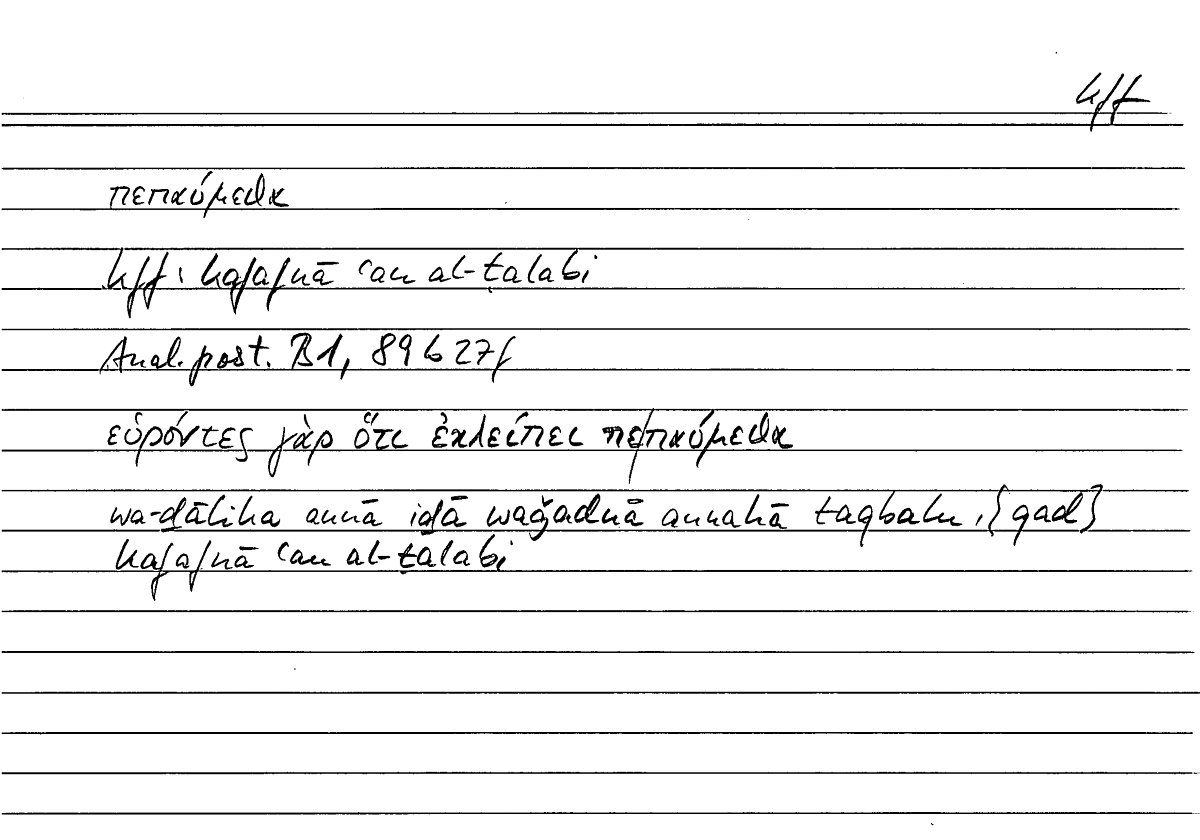 kff
πεπαύμεθα
kff : kafafnā ʿan al-ṭalabi
Anal. post. B1, 89 b 27f
εὑρόντες γὰρ ὅτι ἐκλείπει πεπαύμεθα
wa-ḏālika annā iḏā waǧadnā annahā
kafafnā ʿan al-ṭalabi